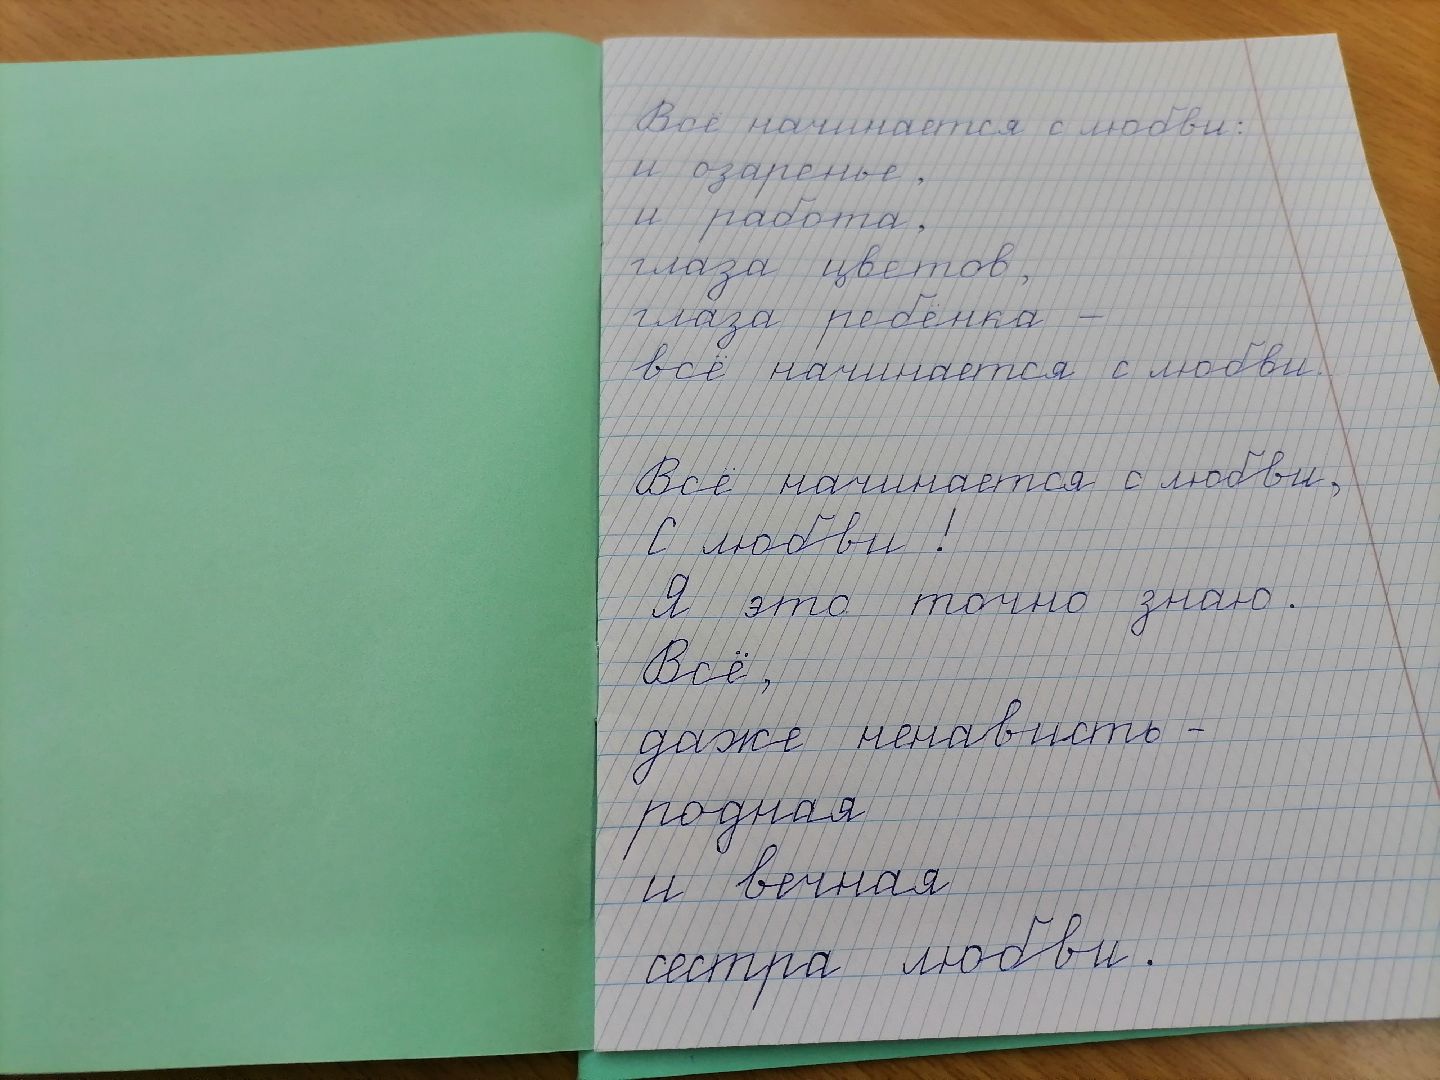 Всё начинается с любви:
и озаренье,
и работа,
глаза цветов,
глаза ребёнка –
всё начинается с любви.
Всё начинается с любви,
С любви!
Я это точно знаю.
Всё,
даже ненависть –
родная
и вечная
сестра любви.